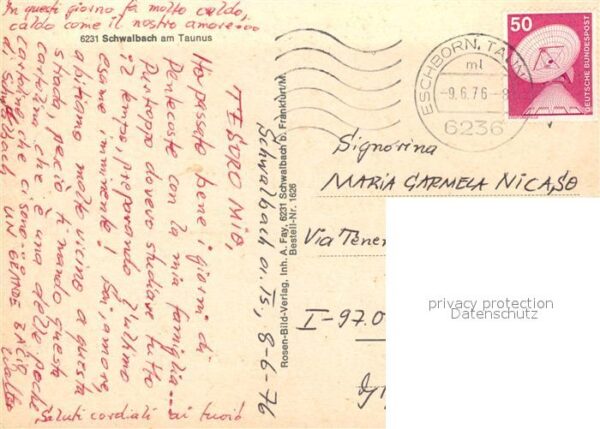 In questi giorno fa molto caldo,
caldo come il nostro amore...
6231 Schwalbach am Taunus
Schwalbach a. Ts, 8-6-76
TESORO MIO,
Ho passato bene i giorni di
Pentecoste con la mia famiglia...
Purtroppo dovevo studiare tutto
il tempo, preparando l'ultimo
esame imminente! Poi, amore,
abitiamo molto vicino a questa
strada, perciò ti mando questa
cartolina che è una delle poche
cartoline che ci sono
di Schwalbach UN GRANDE BACIO
Walter
Saluti cordiali ai tuoi
Rosen-Bild-Verlag, Inh. A. Fay, 6231 Schwalbach b. Frankfurt/M.
Bestell-Nr. 1626
ESCHBORN, TAUN
ml
-9.6.76
6236
50
DEUTSCHE BUNDESPOST
Signorina
MARIA CARMELA NICASO
Via
I-97.0
privacy protection
Datenschutz